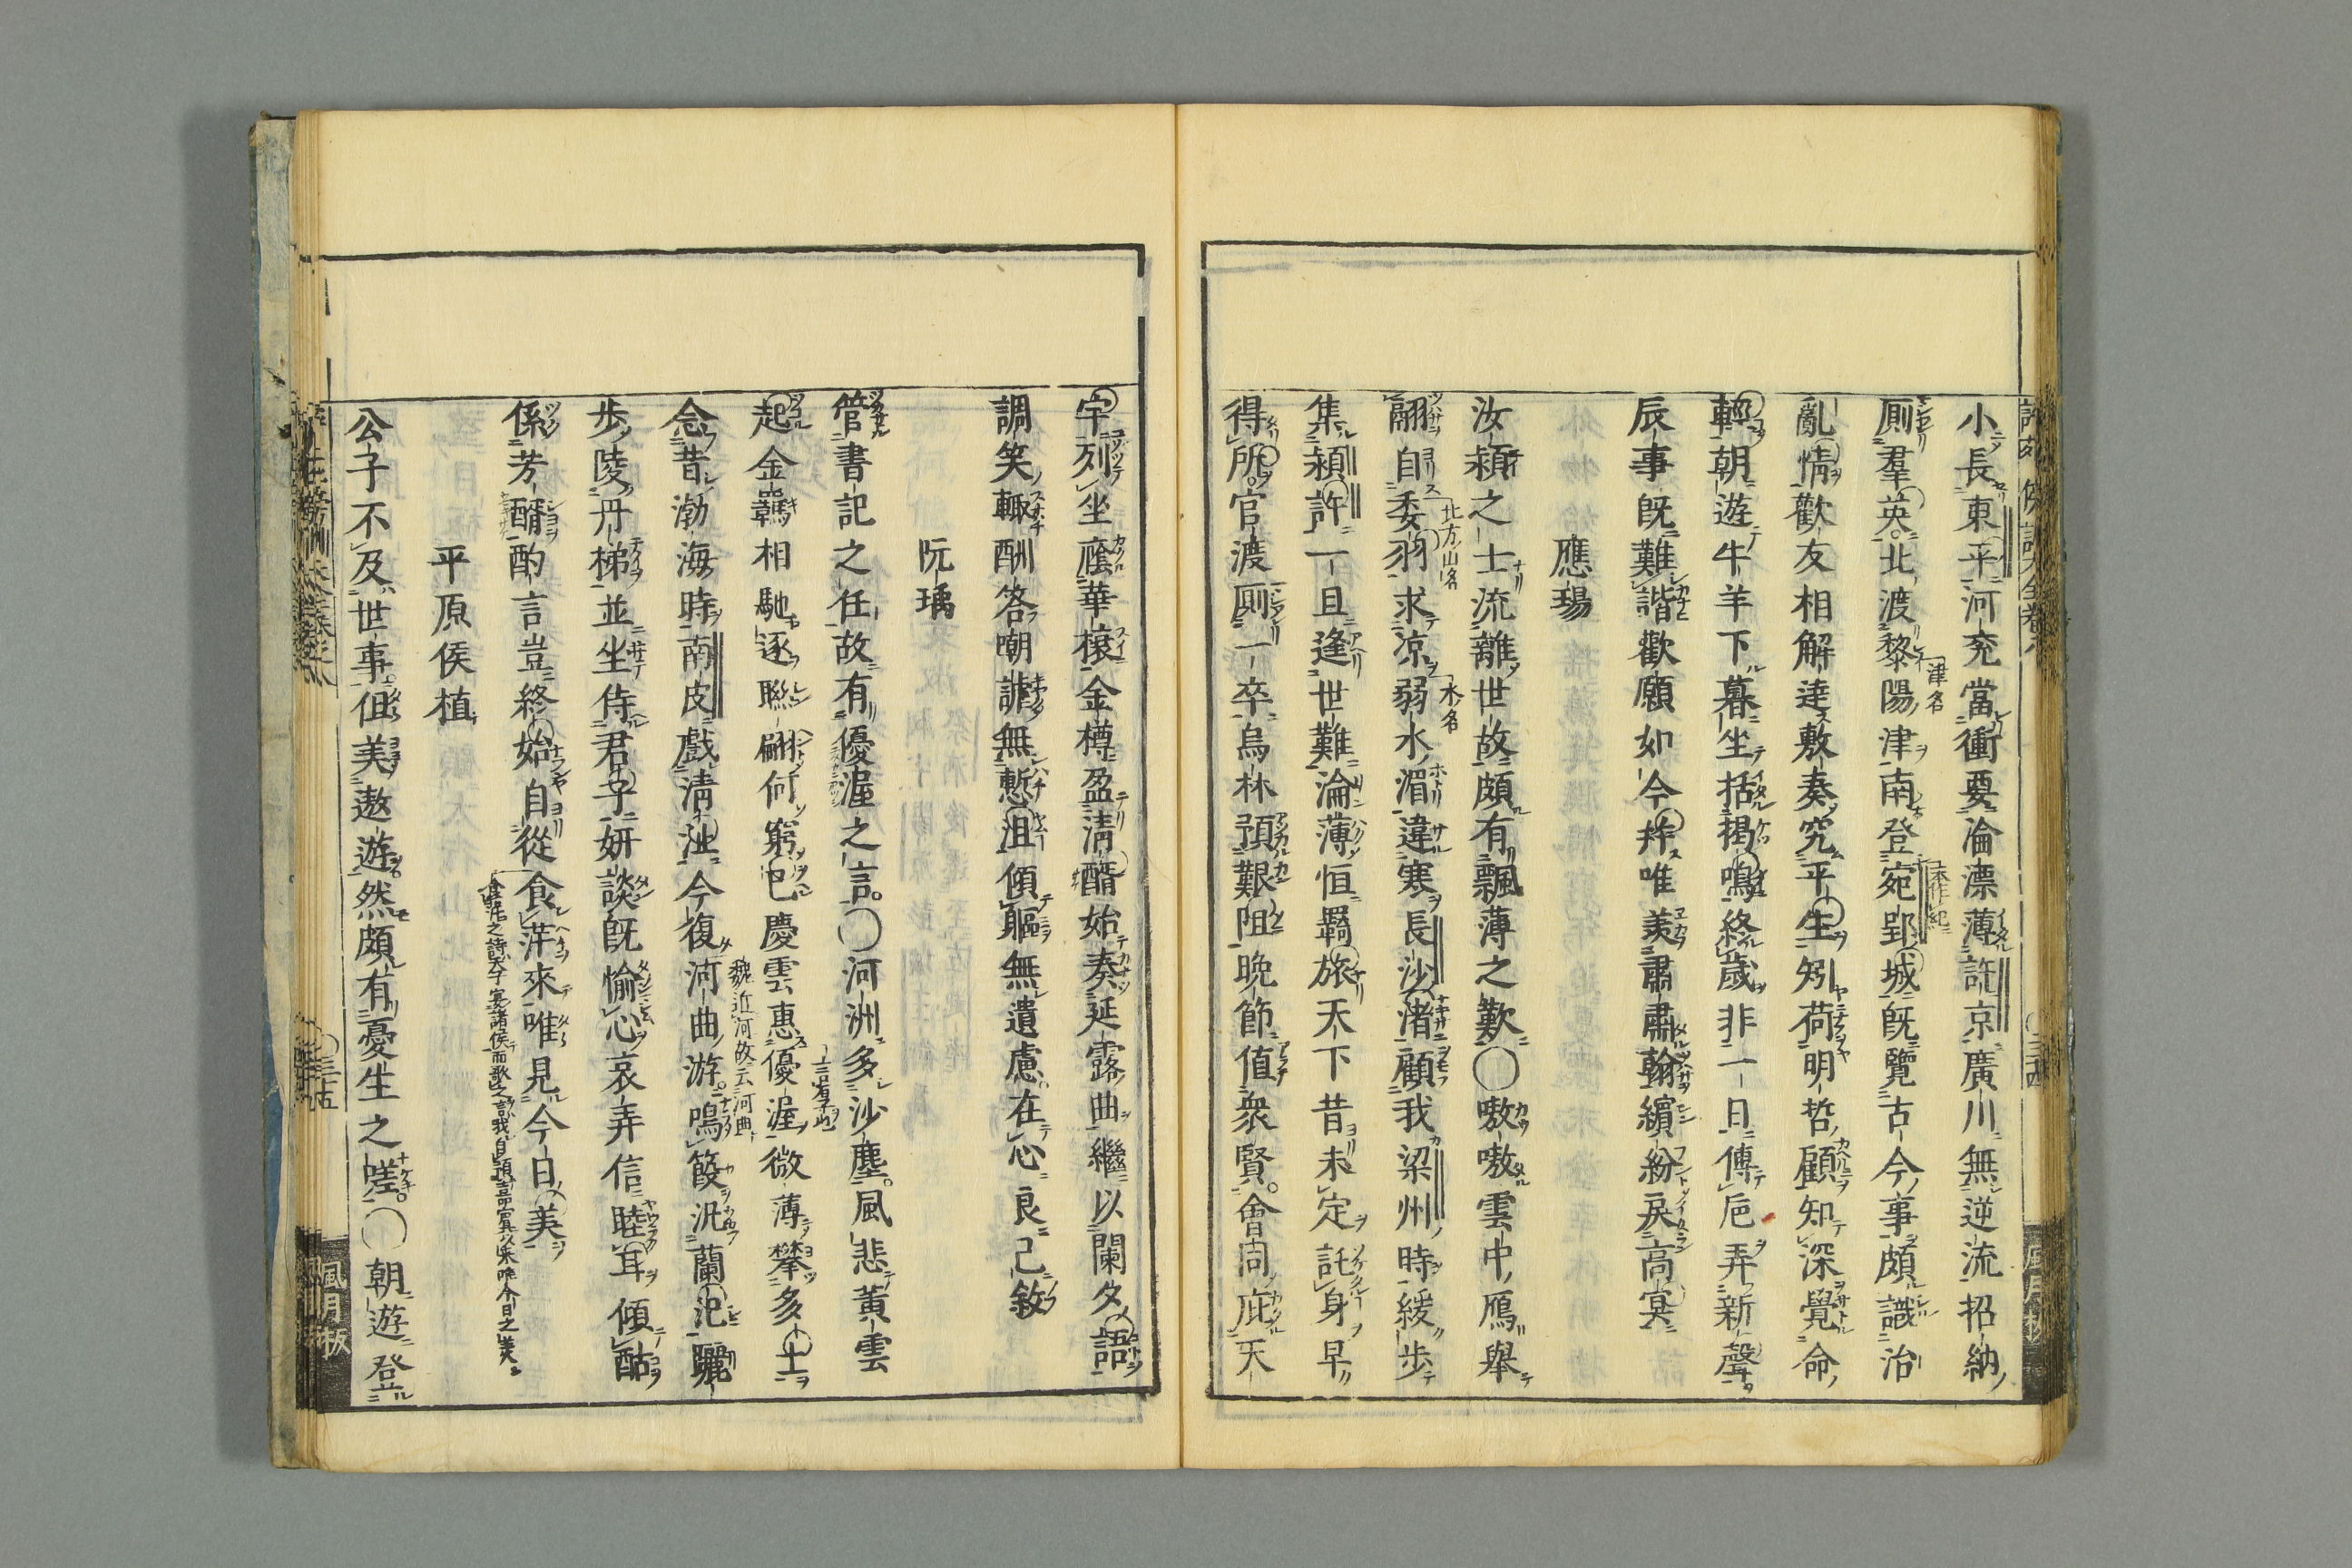 小長東平河兗當衝要淪漂薄許京廣川無逆流招納
厠羣英北渡黎陽津南登宛郢城既覽古今事頗識治
亂情歡友相解達敷奏究平生矧荷明哲顧知深覺命
輕朝遊牛羊下暮坐括揭鳴終歲非一日傳巵弄新聲
辰事既難諧歡願如今幷唯羨肅肅翰繽紛戾高冥
應瑒
汝潁之士流離世故頗有飄薄之歎〇嗷嗷雲中鴈舉
翮自委羽求凉弱水湄違寒長沙渚顧我梁州時緩步
集潁許一旦逢世難淪薄恒羇旅天下昔未定託身早
得所官渡厠一卒烏林預艱阻晚節値衆賢會同庇天
宇列坐廕華榱金樽盈淸醑始奏延露曲繼以闌夕語
調笑輙酬答嘲謔無慙沮傾軀無遺慮在心良已敘
阮瑀
管書記之任故有優渥之言〇河洲多沙塵風悲黃雲
起金羈相馳逐聯翩何窮已慶雲惠優渥微薄攀多士
念昔渤海時南皮戲淸沚今復河曲游鳴葭汎蘭汜躧
步陵丹梯並坐侍君子妍談既愉心哀弄信睦耳傾酤
係芳醑酌言豈終始自從食萍來唯見今日美
平原侯植
公子不及世事但美遨遊然頗有憂生之嗟〇朝遊登
北方山名
水名
津名
魏近河故云河曲
三十五
風月板